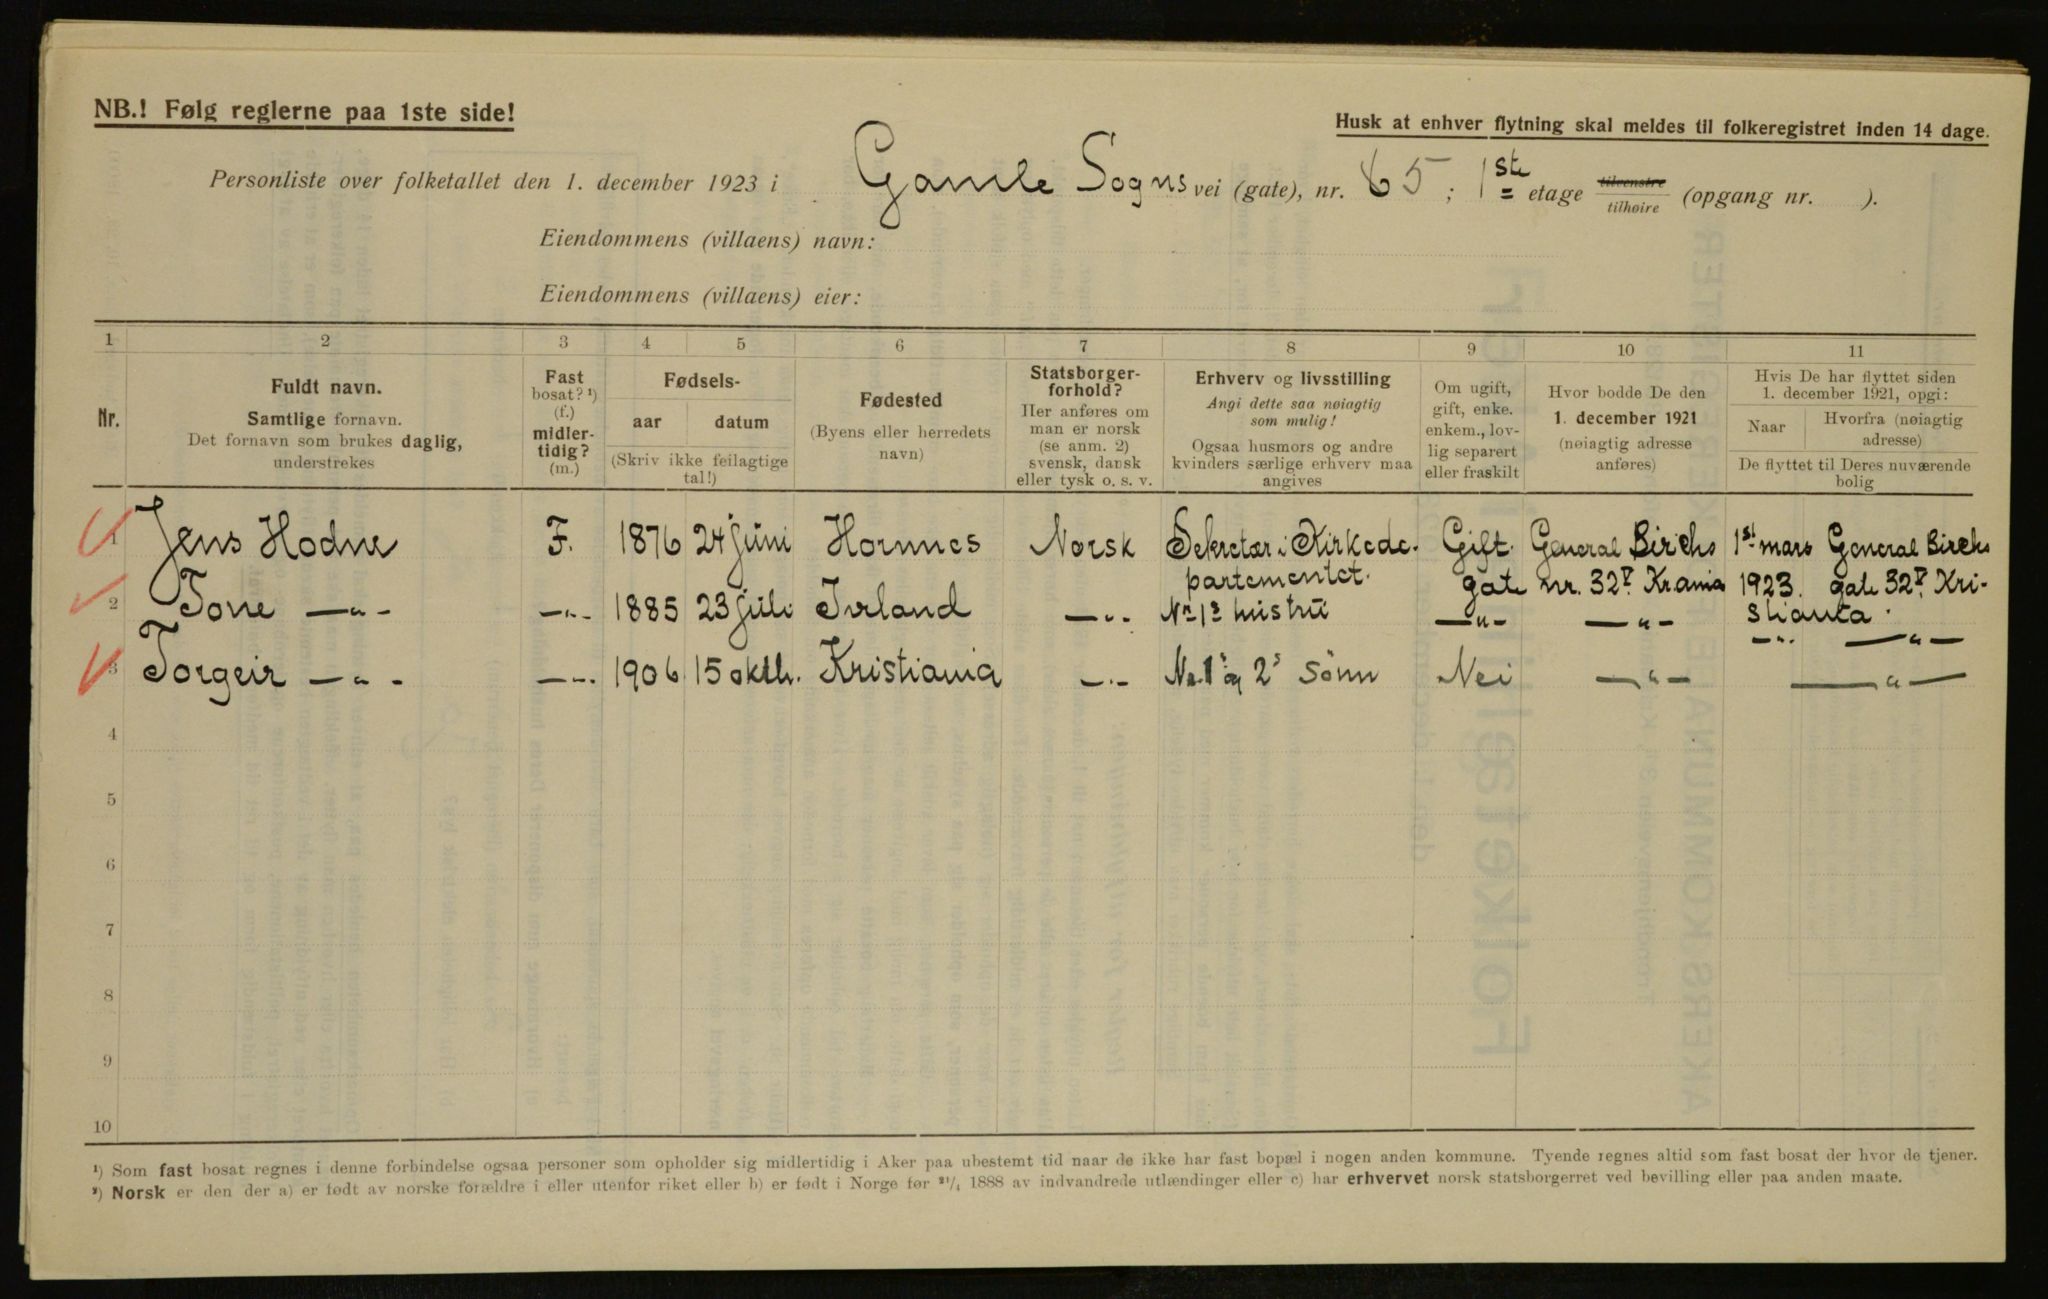 NB.! Følg reglerne paa 1ste side!
Husk at enhver flytning skal meldes til folkeregistret inden 14 dage.
Personliste over folketallet den 1. december 1923 i Gamle Sogns vei (gate), nr. 65; 1ste etage tilvenstre tilhøire (opgang nr. ).
Eiendommens (villaens) navn:
Eiendommens (villaens) eier:
1 2 3 4 5 6 7 8 9 10 11
Nr.
Fuldt navn.
Samtlige fornavn.
Det fornavn som brukes daglig,
understrekes
Fast
bosat? ¹)
(f.)
midler-
tidig?
(m.)
Fødsels-
aar datum
(Skriv ikke feilagtige
tal!)
Fødested
(Byens eller herredets
navn)
Statsborger-
forhold?
Her anføres om
man er norsk
(se anm. 2)
svensk, dansk
eller tysk o. s. v.
Erhverv og livsstilling
Angi dette saa nøiagtig
som mulig!
Ogsaa husmors og andre
kvinders særlige erhverv maa
angives
Om ugift,
gift, enke.
enkem., lov-
lig separert
eller fraskilt
Hvor bodde De den
1. december 1921
(nøiagtig adresse
anføres)
Hvis De har flyttet siden
1. december 1921, opgi:
Naar Hvorfra (nøiagtig
adresse)
De flyttet til Deres nuværende
bolig
1 Jens Hodne F. 1876 24 juni Hornnes Norsk Sekretær i Kirkede- Gift. General Birchs 1st mars General Birchs
partementet. gate nr. 32V Krania 1923. gate 32V, Kri-
2 Tone —"— —"— 1885 23 juli Ivland —"— Nr 1s hustru —"— —"— stiania.
—"— —"—
3 Torgeir —"— —"— 1906 15 oktb. Kristiania —"— Nr. 1s og 2s sønn Nei —"— —"—
4
5
6
7
8
9
10
¹) Som fast bosat regnes i denne forbindelse ogsaa personer som opholder sig midlertidig i Aker paa ubestemt tid naar de ikke har fast bopæl i nogen anden kommune. Tyende regnes altid som fast bosat der hvor de tjener.
²) Norsk er den der a) er født av norske forældre i eller utenfor riket eller b) er født i Norge før ²¹/₄ 1888 av indvandrede utlændinger eller c) har erhvervet norsk statsborgerret ved bevilling eller paa anden maate.